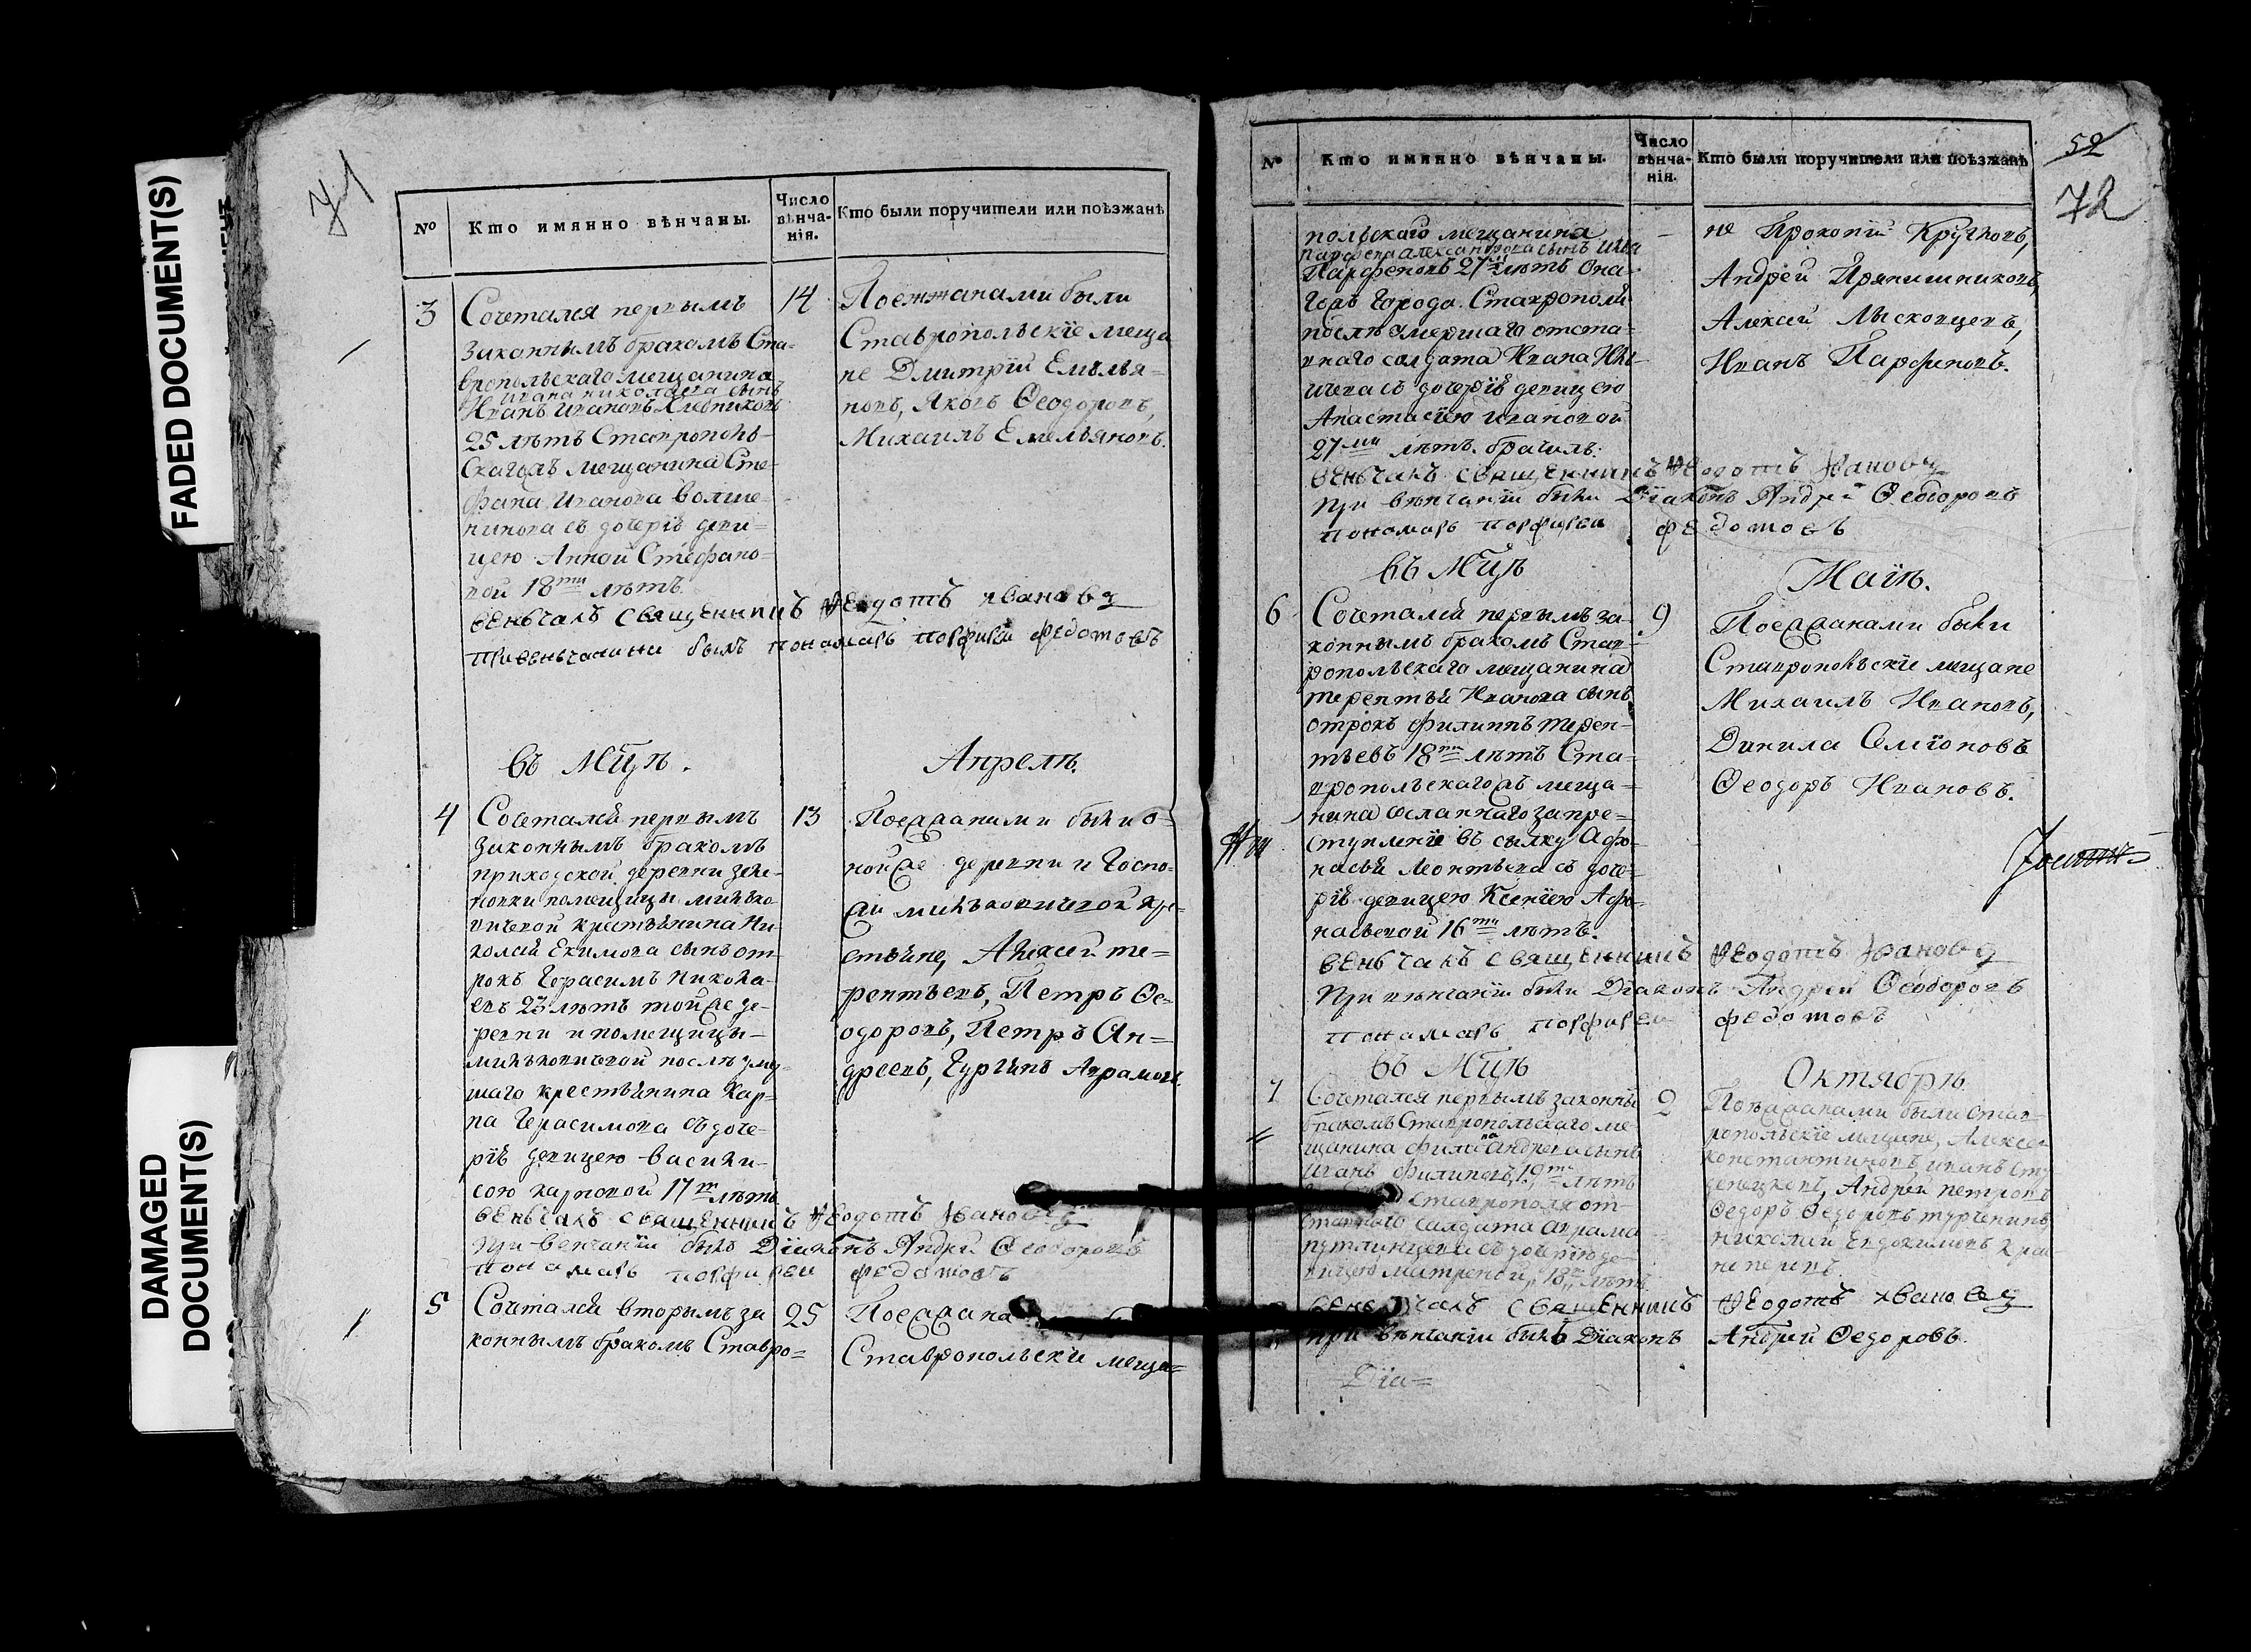 FADED DOCUMENT(S)
DAMAGED
DOCUMENT(S)
71
№
Кто имянно вѣнчаны.
Число
вѣнча-
нія.
Кто были поручители или поѣзжанѣ
3
Сочетался первымъ
законнымъ бракомъ Ста-
вропольскаго мещанина
Ивана николаева сынъ
Иванъ Ивановъ
25 лѣтъ Ставрополь-
скагожъ мещанина Сте-
фана Иванова
съ дочерїѣ деви-
цею Анной Стефано-
вой 18ти лѣтъ
14
Поежжанами были
Ставропольскїе меща
не Дмитрїй Емелья-
новъ, Яковъ Ѳеодоровъ,
Михаилъ Емельяновъ.
веньчалъ священникъ Ѳеодотъ ивановъ
привеньчании былъ понамарь порфирей федотовъ
въ Мцѣ.
Апрелѣ.
4
Сочетался первымъ
законнымъ бракомъ
приходской деревни
помещицы
крестьянина Ни-
колая Екимова сынъ от-
рокъ Герасимъ Никола-
евъ 23 лѣтъ тойже де-
ревни и помещицы-
послѣ уме-
шаго крестьянина Кар-
па Герасимова съ доче-
рїѣ девицею васили-
сою карповой 17ти лѣтъ
13
Поежжанами были о-
нойже деревни и Госпо-
жи кре-
стьяне, Алексей те-
рентьевъ, Петръ Ѳе-
одоровъ, Петръ Ан-
дреевъ, Аврамовъ.
веньчалъ священникъ Ѳеодотъ Ивановъ
при венчанїи былъ Дїаконъ Андрей Ѳеодоровъ
понамарь порфирей федотовъ
5
Сочетался вторымъ за
коннымъ бракомъ Ставро=
25
Поежжана
Ставропольскїе меща=
52
72
№
Кто имянно вѣнчаны.
Число
вѣнча-
нія.
Кто были поручители или поѣзжанѣ
польскаго мещанина
Парфена александрова сынъ
Парфеновъ 27ми лѣтъ Она-
гожъ города Ставрополя
послѣ умершаго отста-
внаго солдата Ивана
съ дочерїѣ девицею
Анастасїею Ивановой
27ми лѣтъ
не Прокопїй Кругловъ,
Андрей Прянишниковъ,
Алексей Лысковцевъ,
Иванъ Парфеновъ.
веньчалъ священникъ Ѳеодотъ Ивановъ
При вѣнчанїи были Дїаконъ Андрей Ѳеодоровъ
понамарь порфиреи федотовъ
въ Мцѣ
Маїѣ.
6
Сочетался первымъ за-
коннымъ бракомъ Став-
ропольскаго мещанина
терентья Иванова сынъ
отрокъ филиппъ терен-
тьевъ 18ти лѣтъ Ста-
вропольскагожъ меща-
нина сосланнаго за пре-
ступленїе въ сылку Афо-
насья Леонтьева съ доче-
рїѣ девицею Ксенїею Афо-
насьевой 16ти лѣтъ.
9
Поежжанами были
Ставропольскїе мещане
Михаилъ Ивановъ,
Данила Семїоновъ
Ѳеодоръ Ивановъ.
веньчалъ священникъ Ѳеодотъ Ивановъ
При вѣнчанїи были Дїаконъ Андрей Ѳеодоровъ
понамарь порфиреи федотовъ
въ Мцѣ
Октябрѣ.
7
Сочетался первымъ законны
бракомъ Ставропольскаго ме-
щанина Филипа Андреева сынъ
Иванъ Филиповъ, 19ти лѣтъ
Ставрополя от-
ставнаго салдата Аврама
съ дочерїю де-
вицею матреной, 18ти лѣтъ
2
Поѣжжанами были став-
ропольскїе мещане, Алексей
константиновъ, иванъ
Андрей петровъ
Ѳедоръ Ѳедоровъ
николай Евдокимовъ
веньчалъ священникъ Ѳеодотъ Ивановъ
при вѣнчанїи былъ Дїаконъ Андрей Ѳедоровъ.
Дїа=